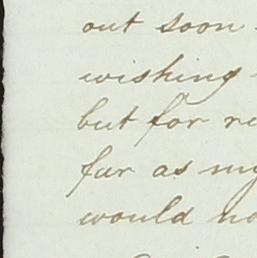 out soon
wishing
but for re
far as my
would no